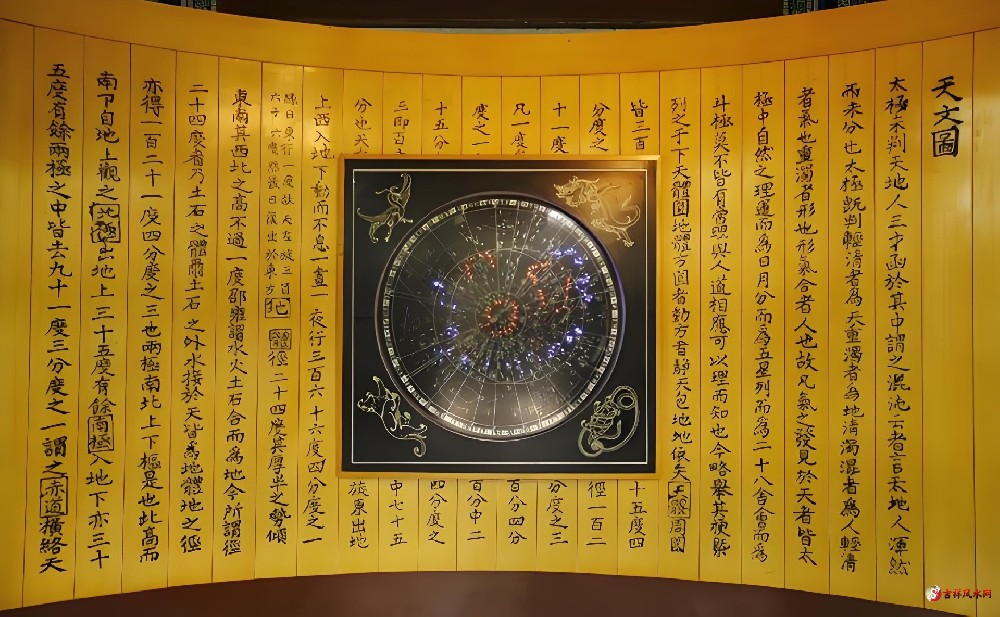 天文圖
太極未判天地人三才函於其中謂之混沌云者言天地人渾然
而未分也太極既判輕清者為天重濁者為地清濁混者為人輕清
者氣也重濁者形也形氣合者人也故凡氣之發見於天者皆太
極中自然之理運而為日月分而為五星列而為二十八舍會而為
斗極莫不皆有常照與人道相應可以理而知也今略舉其梗槩
列之于下天體圓地體方圓者動方者静天包地地依天天體周圍
皆三百 十五度四
分度之 徑一百二
十一度 分度之三
凡一度 百分四分
度之一 百分中二
十五分 四分度之
三即百 中七十五
分也天 旋東出地
上西入地下動而不息一晝一夜行三百六十六度四分度之一
緣日東行一度故天左旋三百
六十六度然後日復出於東方
地體徑二十四度其厚半之勢傾
東南其西北之高不過一度邵雍謂水火土石合而為地今所謂徑
二十四度者乃土石之體爾土石之外水接於天皆為地體地之徑
亦得一百二十一度四分度之三也兩極南北上下樞是也北高而
南下自地上觀之北極出地上三十五度有餘南極入地下亦三十
五度有餘兩極之中皆去九十一度三分度之一謂之赤道橫絡天
吉祥风水网